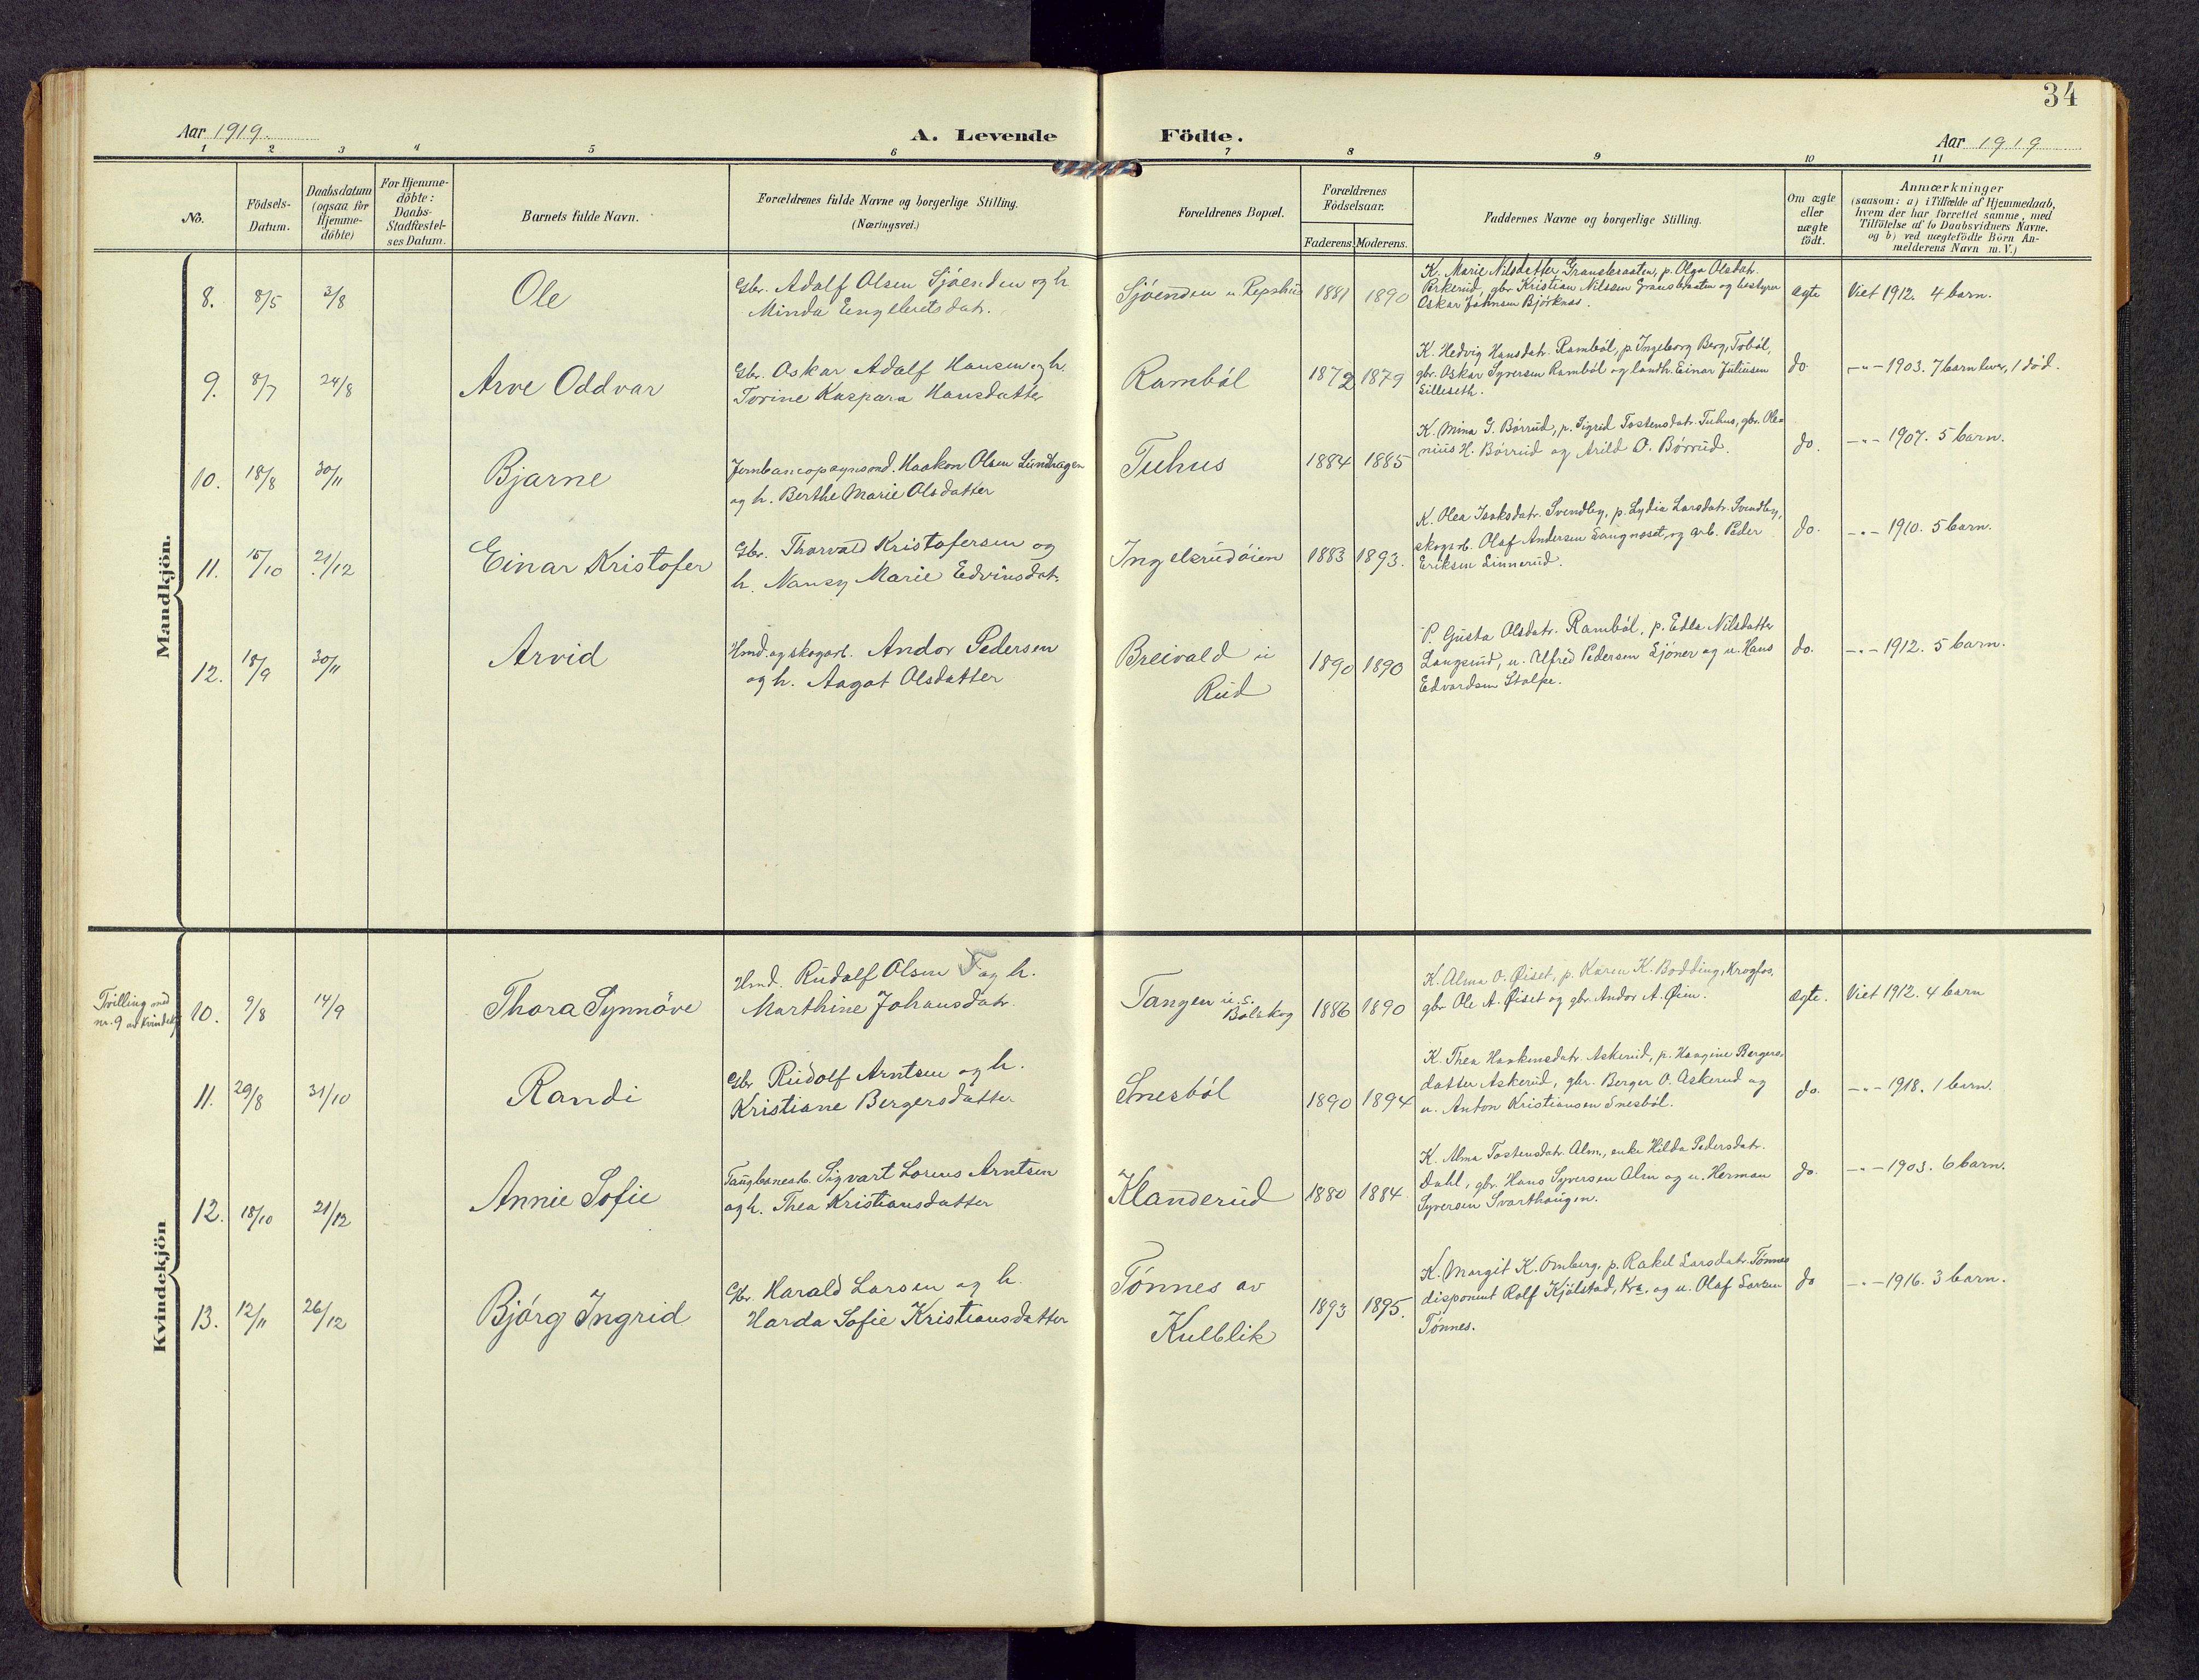 34
Aar 1919.
A. Levende Födte.
Aar 1919
1 2 3 4 5 6 7 8 9 10 11
No.
Födsels-
Datum.
Daabsdatum
(ogsaa for
Hjemme-
döbte)
For Hjemme-
döbte:
Daabs-
Stadfæstel-
ses Datum.
Barnets fulde Navn.
Forældrenes fulde Navne og borgerlige Stilling.
(Næringsvei.)
Forældrenes Bopæl.
Forældrenes
Födselsaar.
Faderens. Moderens.
Faddernes Navne og borgerlige Stilling.
Om ægte
eller
uægte
födt.
Anmærkninger
(saasom: a) i Tilfælde af Hjemmedaab,
hvem der har forrettet samme, med
Tilföielse af to Daabsvidners Navne.
og b) ved uægtefödte Börn An-
melderens Navn m. V.)
Mandkjön.
8. 8/5 3/8
Ole
Gbr. Adolf Olsen Sjöenden og h.
Minda Engebretsdatr.
Sjöenden u. Repshus
1881 1890
K. Marie Nilsdatter Granbraaten, p. Olga Olsdatr.
gbr. Kristian Nilssen Granbraaten og bestyrer
Oskar Johnsen Björknes.
ægte
Viet 1912. 4 barn.
9. 8/7 24/8
Arve Oddvar
Gbr. Oskar Adolf Hansen og h.
Torine Kaspara Hansdatter
Ramböl
1872 1879
K. Hedvig Hansdatr. Ramböl, p. Ingeborg Berg, Toböl,
gbr. Oskar Syversen Ramböl og landh. Einar Juliussen
Silleseth.
do.
-"- 1903. 7 barn lever, 1 död.
10. 18/8 30/11
Bjarne
Haakon Olsen Lundhagen
og h. Berthe Marie Olsdatter
Tuhus
1884 1885
K. Mina G. Börrud, p. Sigrid Tostensdatr. Tuhus, gbr. Ole-
nius H. Börrud og Arild O. Börrud.
do.
-"- 1907. 5 barn.
11. 15/10 21/12
Einar Kristofer
Gbr. Thorvald Kristofersen og
h. Nansy Marie Edvinsdatr.
Ingelsrudöien
1883 1893.
K. Olea Isaksdatr. Svendby, p. Lydia Larsdatr. Svendby,
skogarb. Olaf Andersen Langnæset og arb. Peder
Eriksen Linnerud.
do.
-"- 1910. 5 barn.
12. 18/9 30/11
Arvid
Hmd. og skogarb. Andor Pedersen
og h. Aagot Olsdatter
Breivald u.
Rud
1890 1890
P. Gusta Olsdatr. Ramböl, p. Edla Nilsdatter
Langerud, u. Alfred Pedersen Sjöner og u. Hans
Edvardsen Stolpe.
do.
-"- 1912. 5 barn.
Kvindekjön
Tvilling med
nr. 9 av kvindekj.
10. 9/8 14/9
Thora Synnöve
Hmd. Rudolf Olsen T og h.
Marthine Johansdatr.
Tangen u. s.
Bölskog
1886 1890
K. Alma O. Öiset, p. Karen K. Bodding, Krogfos,
gbr. Ole A. Öiset og gbr. Andor A. Öien.
ægte.
Viet 1912. 4 barn
11. 29/8 31/10
Randi
Gbr. Rudolf Arntsen og h.
Kristiane Bergersdatter
Snesböl
1890 1894
K. Thea Haakensdatr. Askerud, p. Haagine Bergers-
datter Askerud, gbr. Berger O. Askerud og
u. Anton Kristiansen Snesböl.
do.
-"- 1918. 1 barn.
12. 18/10 21/12
Annie Sofie
Taugbanearb. Sigvart Lorens Arntsen
og h. Thea Kristiansdatter
Klanderud
1880 1884.
K. Alma Tostensdatr. Alm, enke Hilda Pedersdatr.
Dahl, gbr. Hans Syversen Alm og u. Herman
Syversen Svarthaugen.
do.
-"- 1903. 6 barn.
13. 12/11 26/12
Bjórg Ingrid
Gbr. Harald Larsen og h.
Harda Sofie Kristiansdatter
Tönnes av
Kulblik
1893 1895.
K. Margit K. Omberg, p. Rakel Larsdatr. Tönnes
disponent Rolf Kjölstad, Kra. og u. Olaf Larsen
Tönnes.
do
-"- 1916. 3 barn.